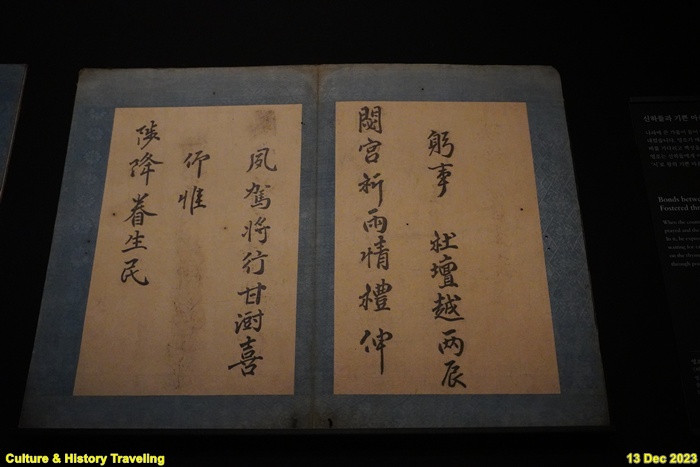 躬事 社壇越两辰
閟宮祈雨情禮伸
夙駕將行甘澍喜
仰惟
陟降眷生民
신하들과 기쁜
Bonds
Fostered
Culture & History Traveling
13 Dec 2023